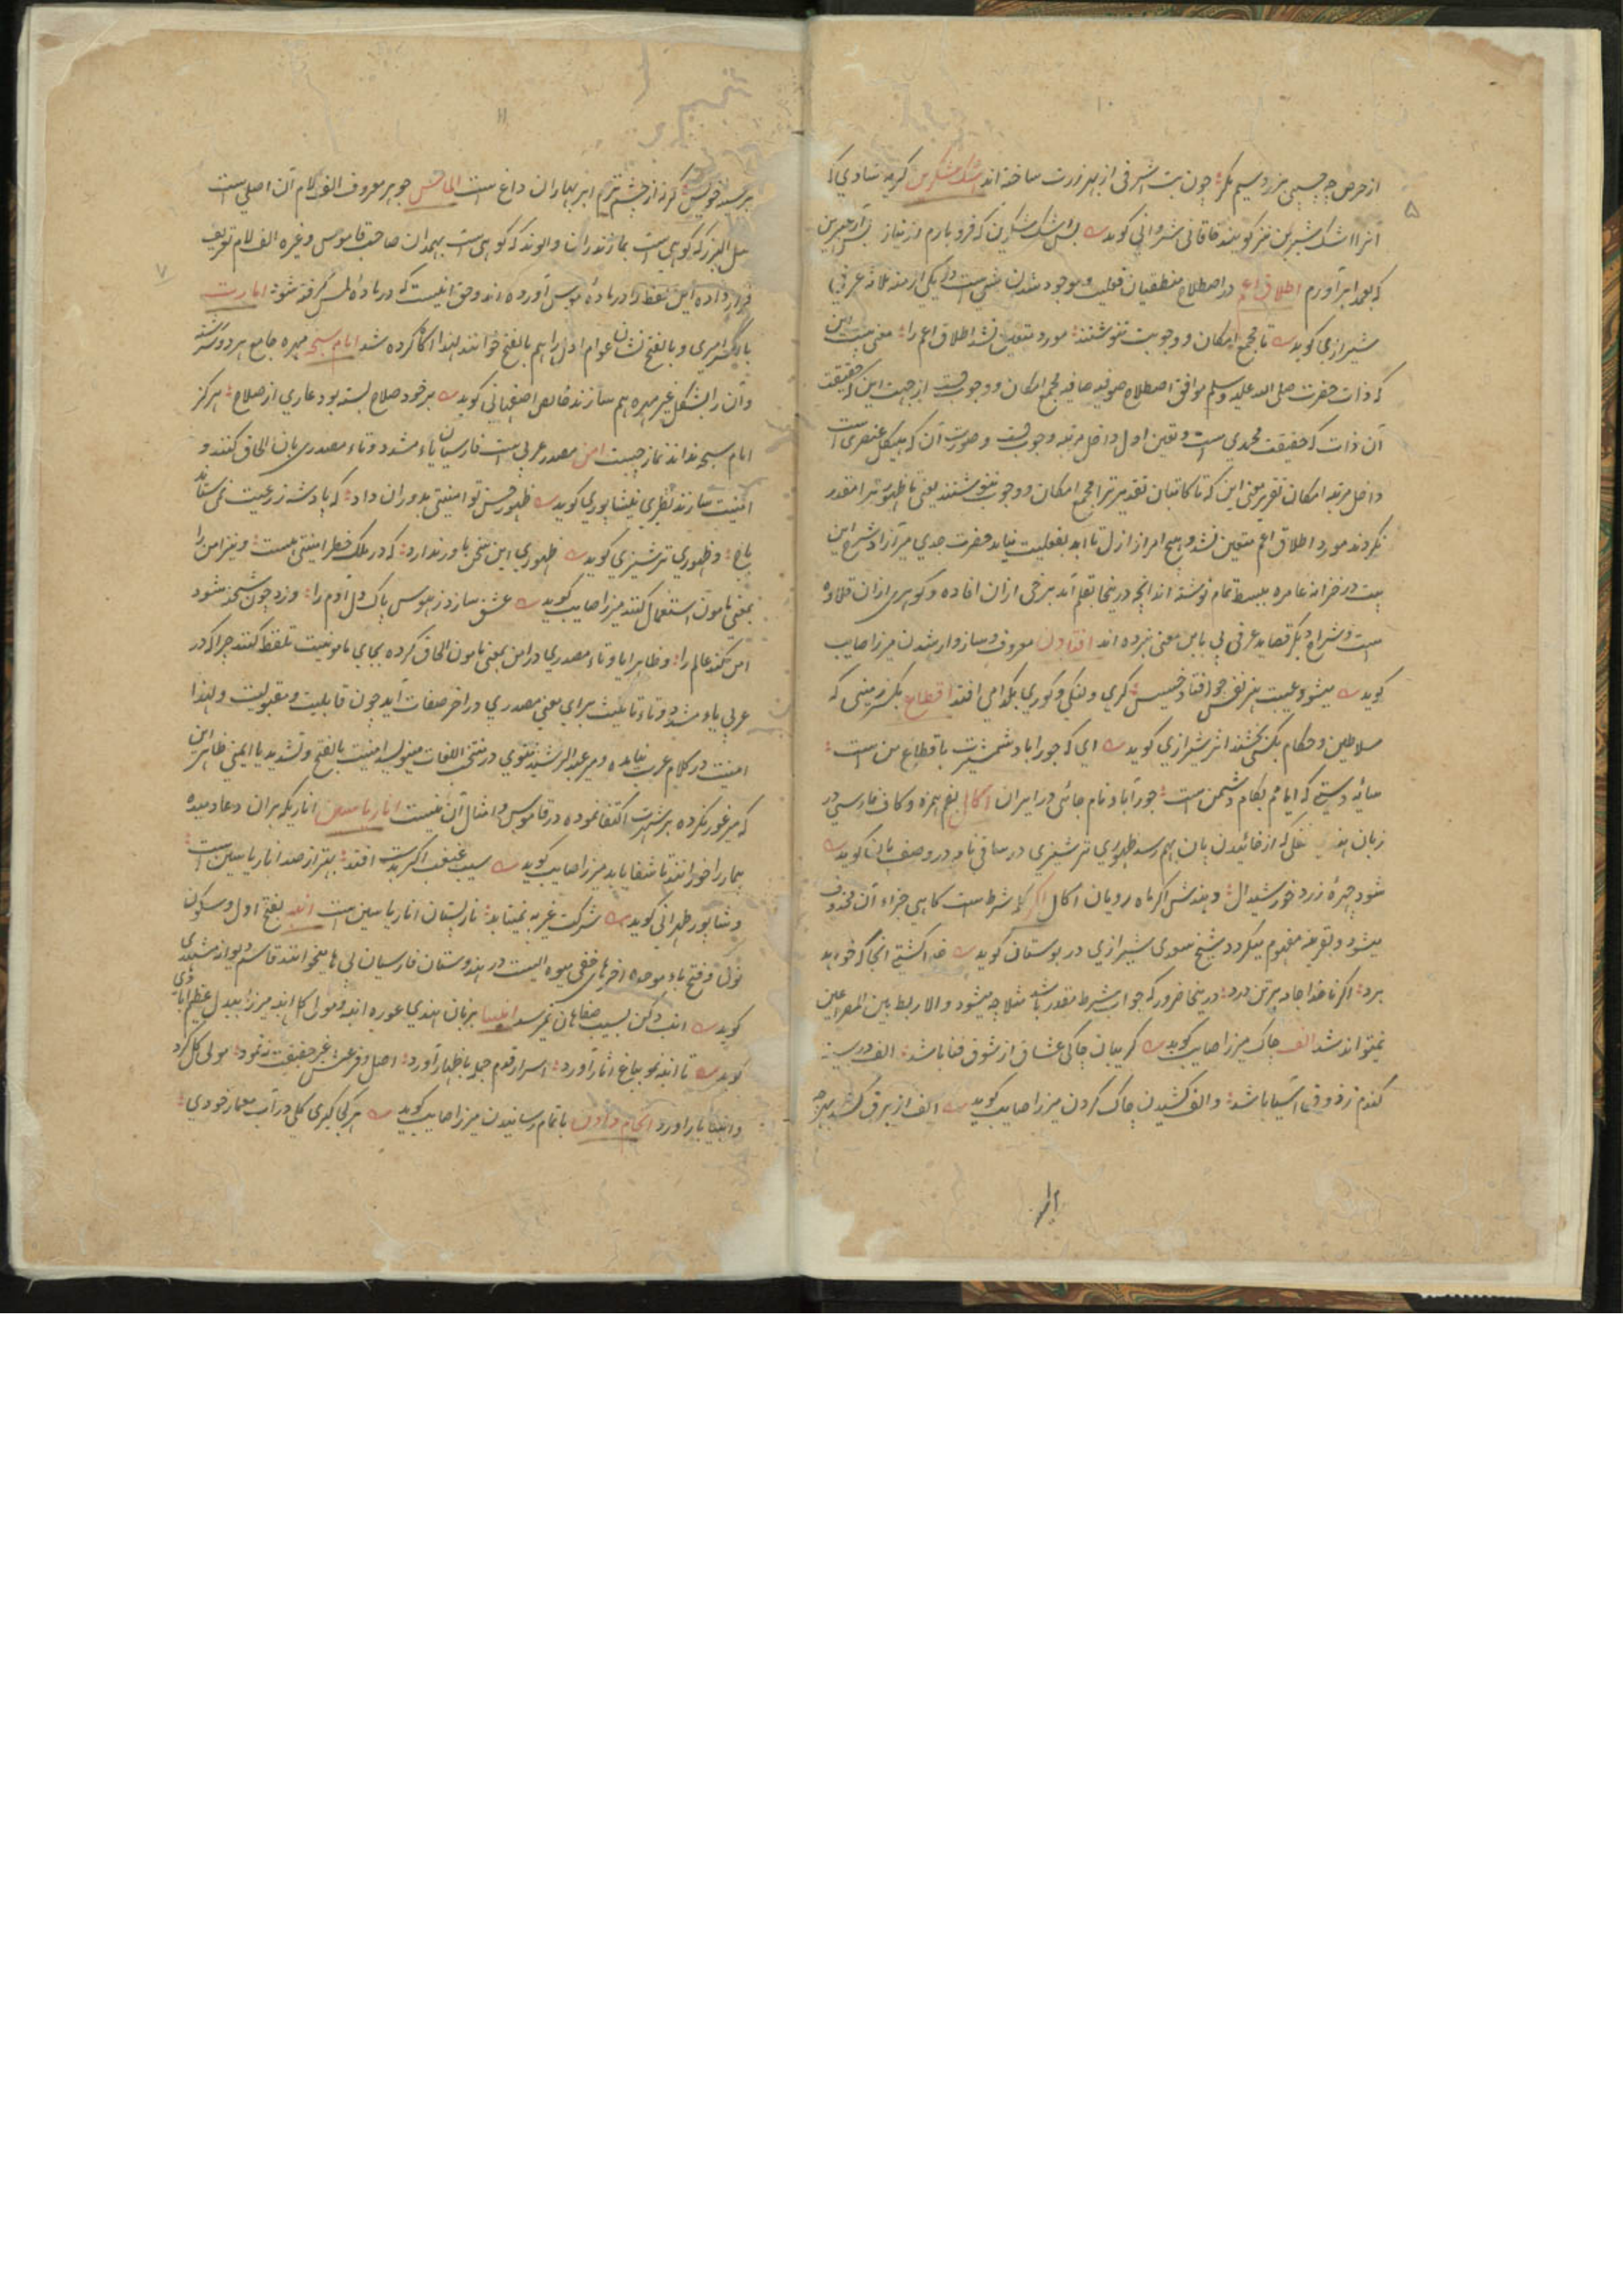 ۱۰
از حرص چه چسپی بزر و سیم مگر چون بت اشرفی از بهر زرت ساخته اند اشک شکرین گریهٔ شادی که
۵
آنرا اشک شیرین نیز گویند خاقانی شروانی گوید بس اشک شکرین که فرو بارم از نیاز بس آه عنبرین
که بعمد ابر آورم اطلاق اعم در اصطلاح منطقیان فعلیت و موجود شدن شیٔ است در یکی از منهٔ ثلاثه عرفی
شیرازی گوید تا مجمع امکان و وجوبت ننوشتند مورد متعین نشد اطلاق اعم را معنی بیت این
که ذات حضرت صلی الله علیه و سلم موافق اصطلاح صوفیه صافیه مجمع امکان و وجوبست از جهت این که حقیقت
آن ذات که حقیقت محمدی است و تعین اول داخل مرتبه وجوبست و صورت آن که هیکل عنصری است
داخل مرتبه امکان تقریر معنی این که تا کاتبان تقدیر ترا مجمع امکان و وجوب ننوشتند یعنی تا ظهور ترا مقدر
نکردند مورد اطلاق اعم متعین نشد و هیچ امر از ازل تا ابد بفعلیت نیامد حضرت جدی میر آزاد شرح این
بیت در خزانه عامره ببسط تمام نوشته اند آنچه درینجا بقلم آمد برخی ازان افاده و گوهری ازان قلاده
است و شراح دیگر قصاید عرفی پی باین معنی نبرده اند افتادن معروف و سازوار شدن میرزا صایب
گوید میشود عیبت هنر نفس چو افتاد خسیس کری و لنگی و کوری بگدا می افتد اقطاع بکسر زمینی که
سلاطین و حکام بکس بخشند اثر شیرازی گوید ای که جوراباد شمشیرت باقطاع من است
سائه دستی که ایامم بکام دشمن است جورآباد نام جائی در ایران اکال بضم همزه و کاف فارسی در
زبان هندی ثفلی که از خائیدن پان بهم رسد ظهوری ترشیزی در ساقی نامه در وصف پان گوید
شود چهرهٔ زرد خورشید ال دهندش اگر ماه رویان اکال اگر کلمه شرط است گاهی جزاء آن محذوف
میشود و بقرینه مفهوم میگردد شیخ سعدی شیرازی در بوستان گوید خدا کشتی آنجا که خواهد
برد اگر ناخدا جامه بر تن درد درینجا ضرور که جواب شرط مقدر باشد مثلا چه میشود و الا ربط بین المصراعین
نمیتواند شد الف چاک میرزا صایب گوید گریبان چاکی عشاق از شوق فنا باشد الف در سینهٔ
گندم ز ذوق آسیا باشد و الف کشیدن چاک کردن میرزا صایب گوید الف از برق کشد
۱۱
بر سینهٔ خویش گرنه از چشم ترم ابر بهاران داغ است الماس جوهر معروف الف لام آن اصلی است
مثل البرز که کوهی است بمازندران و الوند که کوهی است بهمدان صاحب قاموس و غیره الف لام تعریف
قرار داده این لفظ را در مادهٔ موس آورده اند و حق اینست که در مادهٔ الس گرفته شود امارت
۷
بالکسر امیری و بالفتح نشان عوام اول را هم بالفتح خوانند لهذا آگاه کرده شد امام سبحه مهره جامع هر دو رشته
وآن را بشکل غیر مهره هم سازند خالص اصفهانی گوید بر خود صلاح بسته بود عاری از صلاح هرگز
امام سبحه نداند نماز چیست امن مصدر عربی است فارسیان یاء مشدد و تاء مصدری بان الحاق کنند و
امنیت سازند نظیری نیشاپوری گوید ظهور حسن تو امنیتی بدوران داد که پادشه ز رعیت نمی ستاند
باج و ظهوری ترشیزی گوید ظهوری این سخن باور ندارد که در ملک خطر امنیتی هست و نیز امن را
بمعنی مامون استعمال کنند میرزا صایب گوید عشق سازد ز هوس پاک دل آدم را دزد چون شحنه شود
امن کند عالم را و ظاهرا یا و تاء مصدری در امن بمعنی مامون الحاق کرده بجای مامونیت تلفظ کنند چرا که در
عربی یاء مشدد و تاء تانیث برای معنی مصدری در آخر صفات آید چون قابلیت و مقبولیت و لهذا
امنیت در کلام عرب نیامده و میر عبد الرشید تتوی در منتخب اللغات مینویسد امنیت بالفتح و تشدید یا ایمنی ظاهر این
که میر غور نکرده بر شهرت اکتفا نموده در قاموس و امثال آن نیست انار یاسین انار یکه بران دعا دمیده
بیمار را خورانند تا شفا یابد میرزا صایب گوید سیب غبغب اگرت بدست افتد بهتر از صد انار یاسین است
و شاپور طهرانی گوید شرکت غیر بر نمیتابد نار پستان انار یاسین است انبه بفتح اول و سکون
نون و فتح باء موحده آخر های خفی میوه ایست در هندوستان فارسیان بی ها نیز خوانند قاسم دیوانه مشهدی
گوید انب دکن بسیب صفاهان نمیرسد انبیا بزبان هندی غوره انبه و مول گل انبه میرزا بیدل عظیم آبادی
گوید تا انبه نمو بباغ آثار آورد اسرار قدم جمله باظهار آورد اصل و فرعش غیر حقیقت ننمود مولی گل کرد
و انبیا بار آورد انجام دادن باتمام رسانیدن میرزا صایب گوید هر کجا گیری گلی در آب معمار خودی